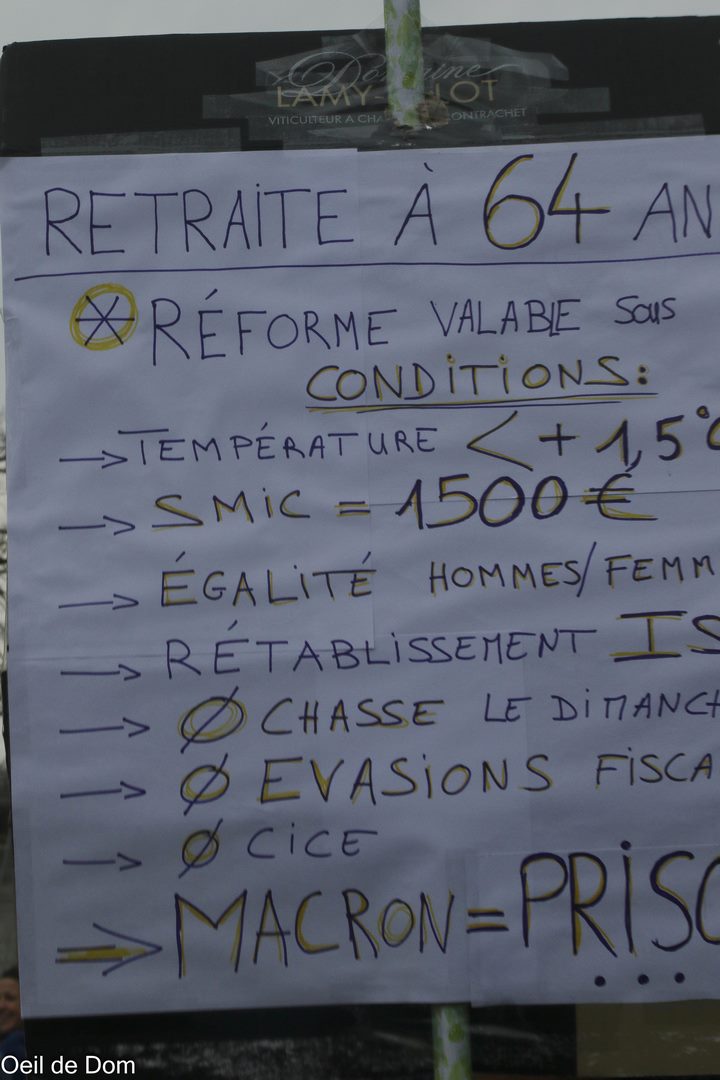 Domaine
LAMY-PILLOT
VITICULTEUR A CHA ONTRACHET
RETRAITE À 64 AN
* RÉFORME VALABLE SOUS
CONDITIONS:
→ TEMPÉRATURE < + 1,5°C
→ SMIC = 1500 €
→ ÉGALITÉ HOMMES/FEMM
→ RÉTABLISSEMENT IS
→ Ø CHASSE LE DIMANCH
→ Ø EVASIONS FISCA
→ Ø CICE
⇒ MACRON = PRISO
...
Oeil de Dom